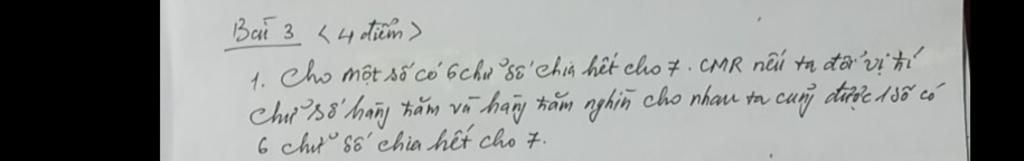 Bài 3 <4 điểm>
1. Cho một số có 6 chữ số chia hết cho 7. CMR nếu ta đổi vị trí
chữ số hàng trăm và hàng trăm nghìn cho nhau ta cũng được 1 số có
6 chữ số chia hết cho 7.